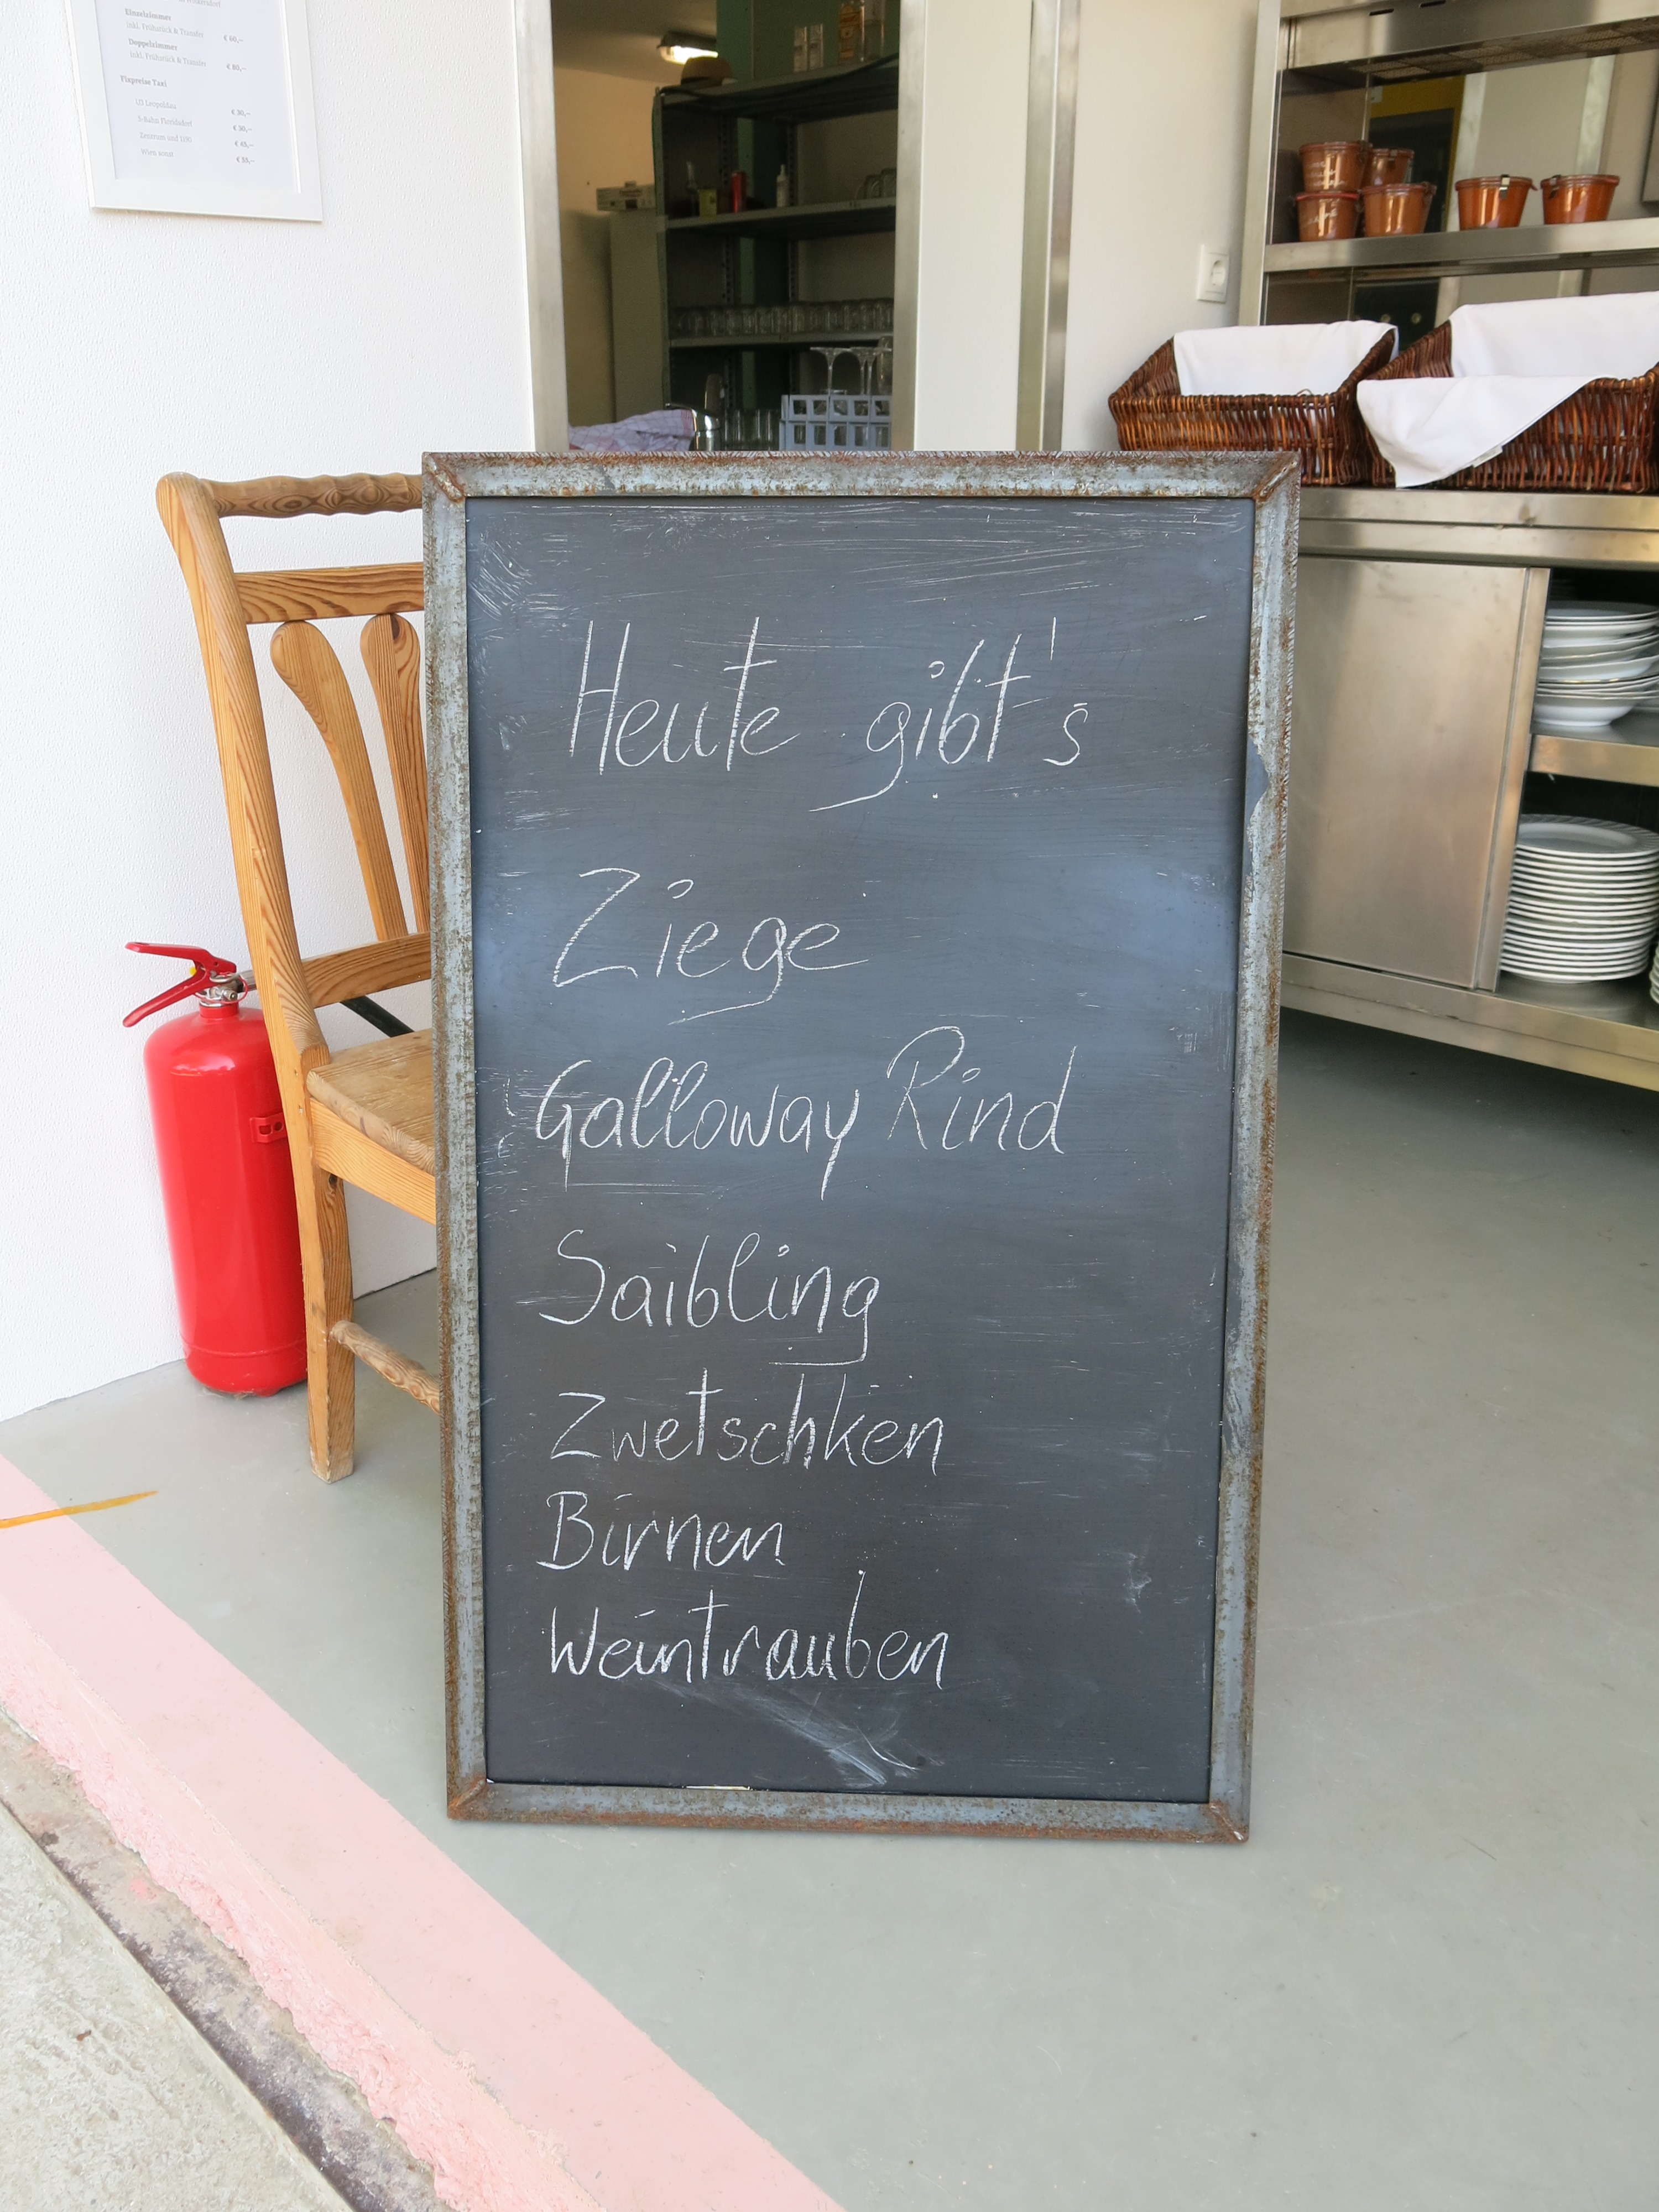 Einzelzimmer
inkl. Frühstück & Transfer € 60,–
Doppelzimmer
inkl. Frühstück & Transfer € 80,–
Fixpreise Taxi
U1 Leopoldau € 30,–
S-Bahn Floridsdorf € 30,–
Zentrum und € 45,–
Wien sonst € 55,–
Heute gibt's
Ziege
Galloway Rind
Saibling
Zwetschken
Birnen
Weintrauben